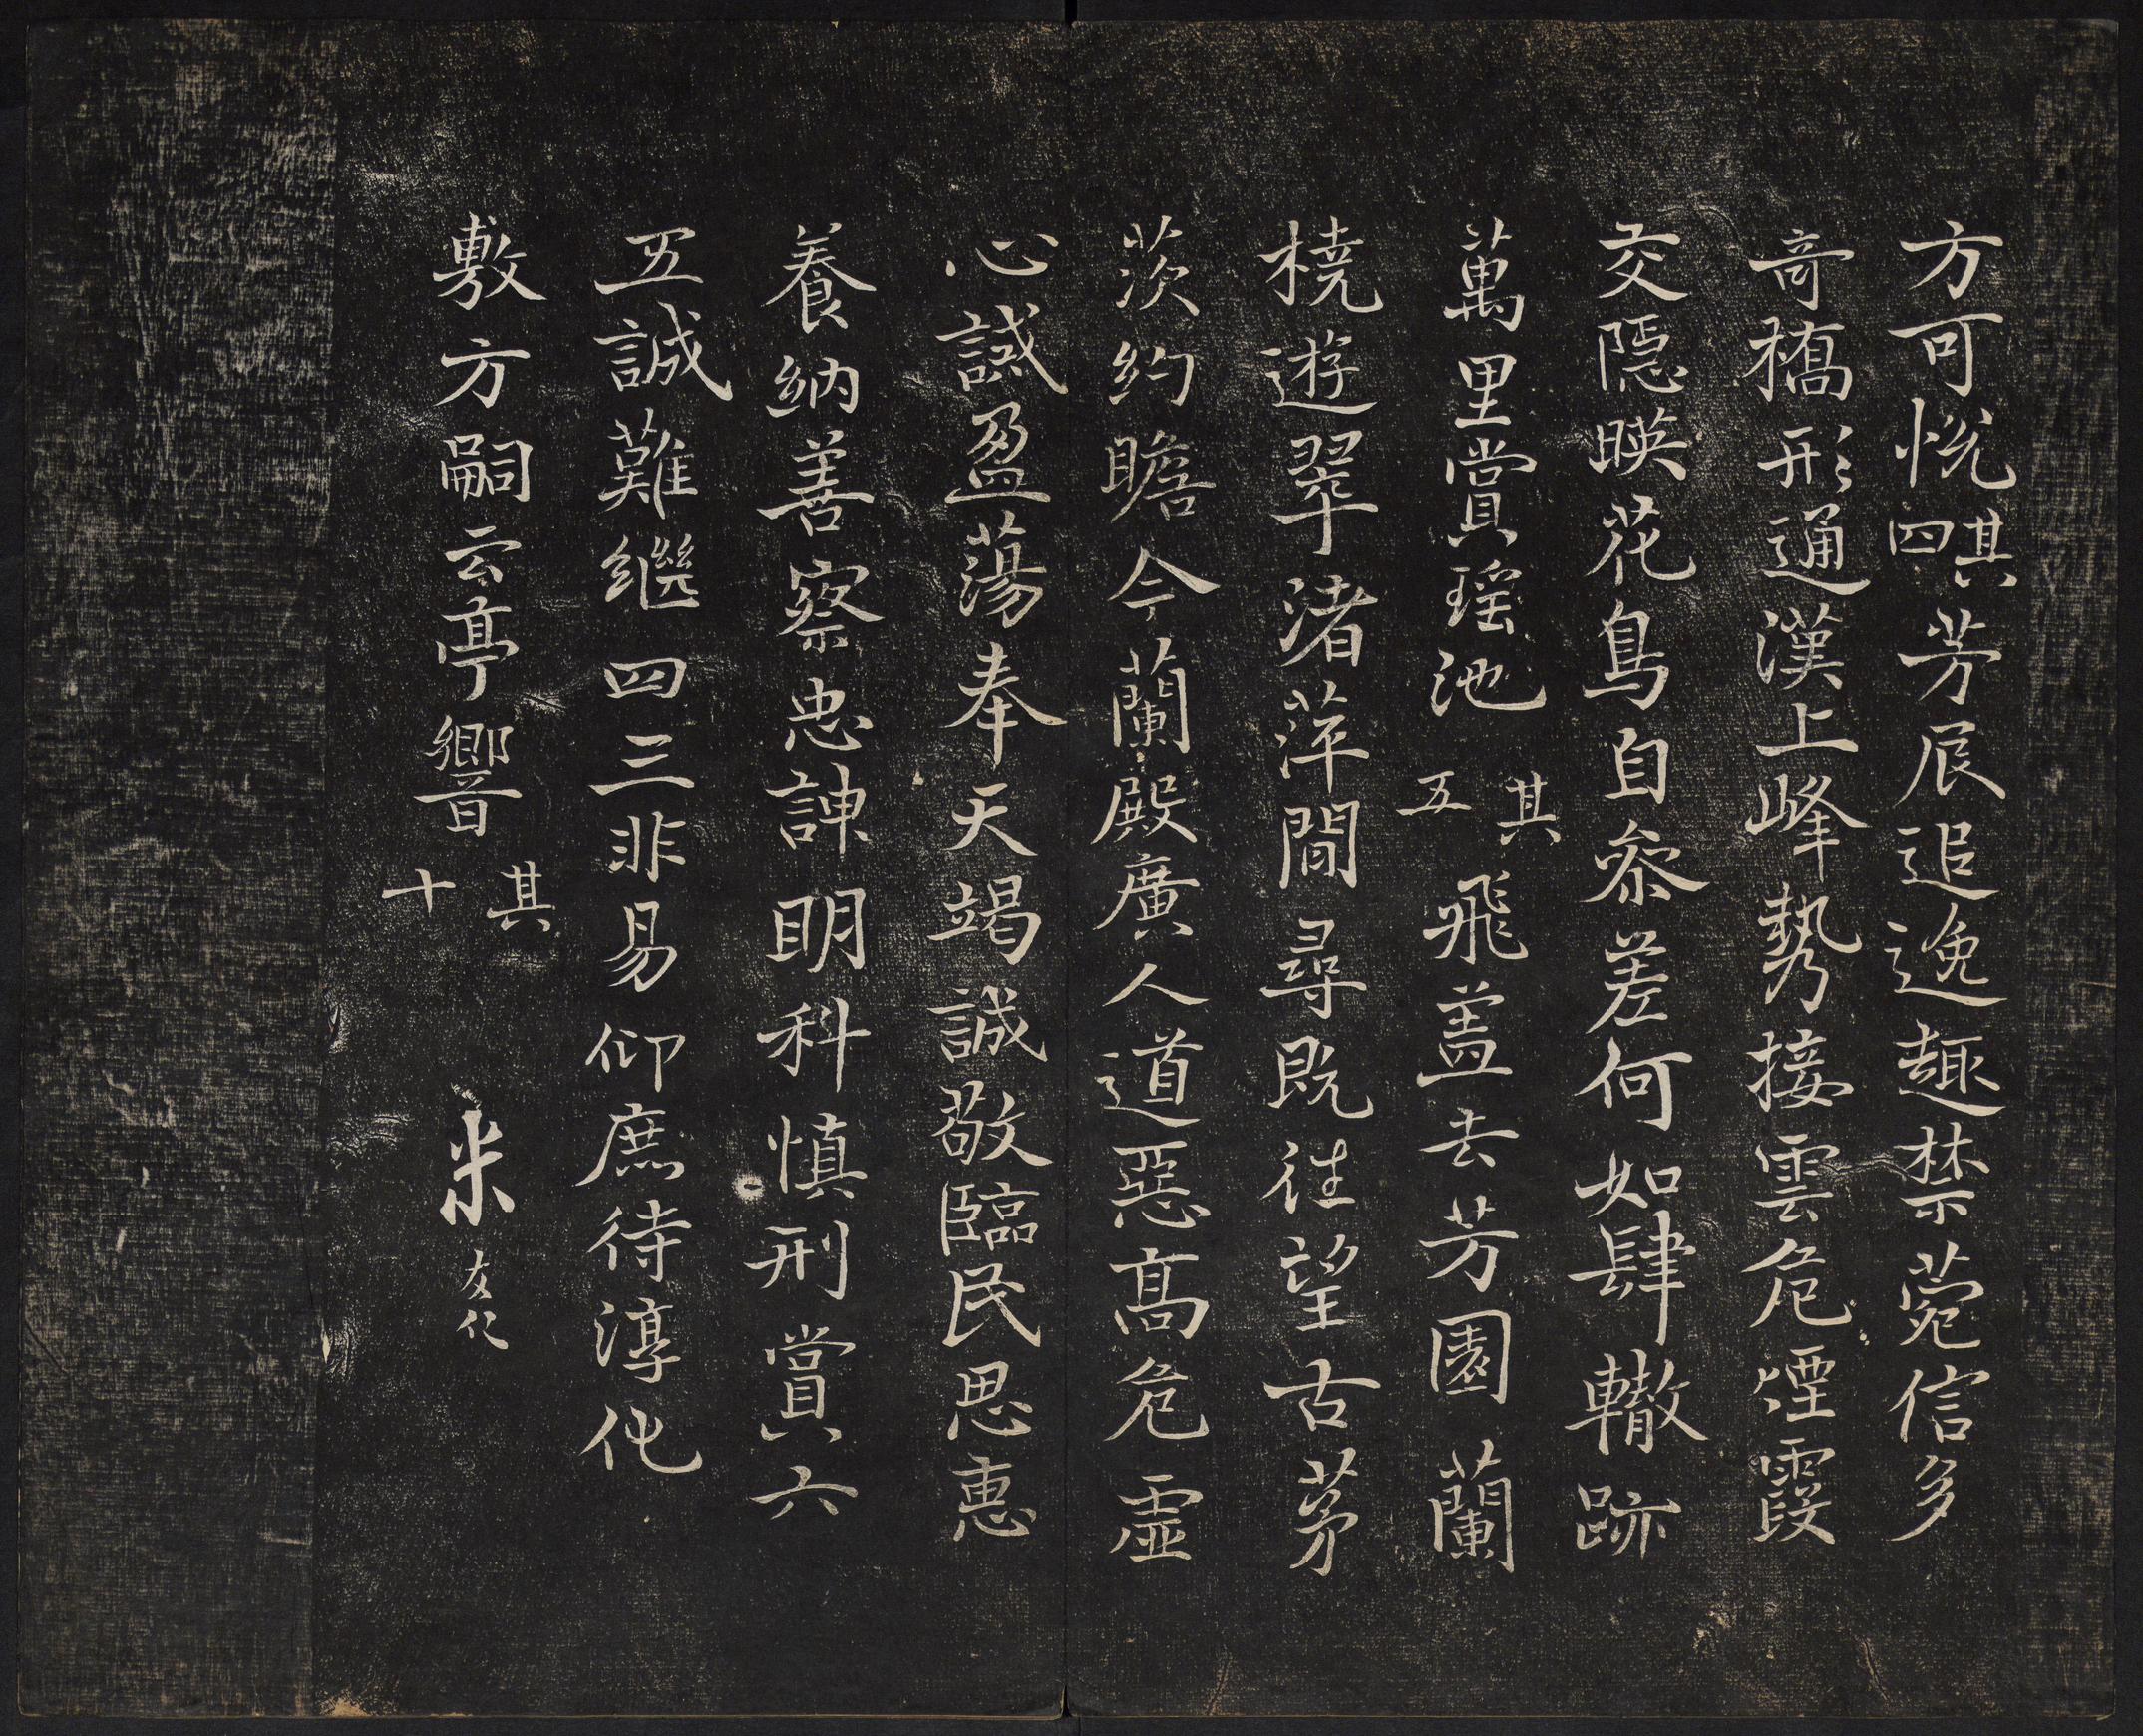 方可悅其四芳展追逸趣禁菀信多
奇橋形通漢上峰勢接雲危煙霞
交隱暎花鳥自叅差何如肆轍跡
萬里賞瑤池其五飛盖去芳園蘭
橈遊翠渚萍間尋既往望古茅
茨約瞻今蘭殿廣人道惡高危虛
心誡盈蕩奉天竭誠敬臨民思惠
養納善察忠諫明科慎刑賞六
五誠難繼四三非易仰庶待淳化
敷方嗣云亭響其十 米友仁